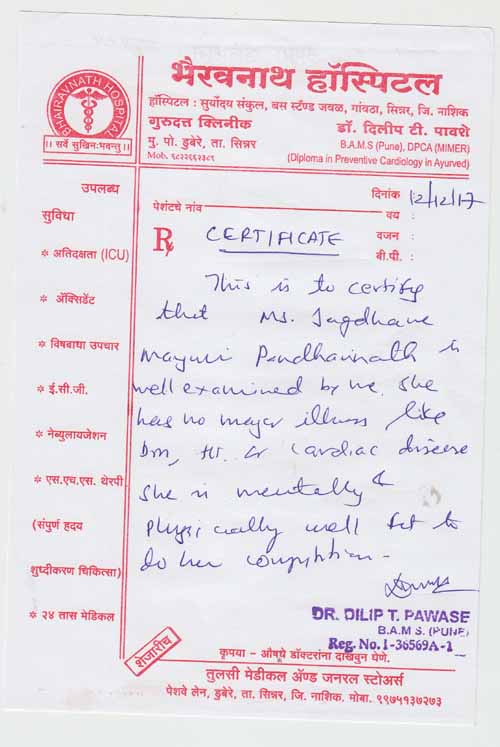 भैरवनाथ हॉस्पिटल
BHAIRAVNATH HOSPITAL
।। सर्वे सुखिनः भवन्तु ।।
हॉस्पिटल : सुर्योदय संकुल, बस स्टॅण्ड जवळ, गांवठा, सिन्नर, जि. नाशिक
गुरुदत्त क्लिनीक
मु. पो. डुबेरे, ता. सिन्नर
Mob. ९८२२६६२३८९
डॉ. दिलीप टी. पावशे
B.A.M.S (Pune), DPCA (MIMER)
(Diploma in Preventive Cardiology in Ayurved)
उपलब्ध
सुविधा
* अतिदक्षता (ICU)
* ॲक्सिडेंट
* विषबाधा उपचार
* ई.सी.जी.
* नेब्युलायजेशन
* एस.एच.एस. थेरपी
(संपुर्ण हृदय
शुध्दीकरण चिकित्सा)
* २४ तास मेडिकल
दिनांक 12/12/17
पेशंटचे नांव
वय :
वजन :
बी.पी. :
Rx CERTIFICATE
This is to certify
that Ms. Jagdhane
Mayuri Pandharinath is
well examined by me. she
has no mayor illness like
Dm, Ht. or cardiac disease
she is mentally &
physically well fit to
do her compitition -
DR. DILIP T. PAWASE
B.A.M.S. (PUNE)
Reg. No. I-36569A-1
शेजारीच
कृपया - औषधे डॉक्टरांना दाखवुन घेणे.
तुलसी मेडीकल ॲण्ड जनरल स्टोअर्स
पेशवे लेन, डुबेरे, ता. सिन्नर, जि. नाशिक. मोबा. ९९७५१३७२७३